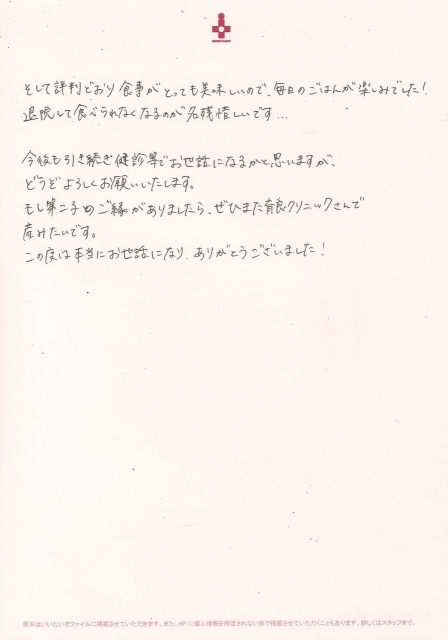 そして評判どおり食事がとっても美味しいので、毎日のごはんが楽しみでした!
退院して食べられなくなるのが名残惜しいです...
今後も引き続き健診等でお世話になるかと思いますが、
どうぞよろしくお願いいたします。
もし第二子のご縁がありましたら、ぜひまた育良クリニックさんで
産みたいです。
この度は本当にお世話になり、ありがとうございました!
原本はいいたいぞファイルに掲載させていただきます。また、HPに個人情報を特定されない形で掲載させていただくこともあります。詳しくはスタッフまで。